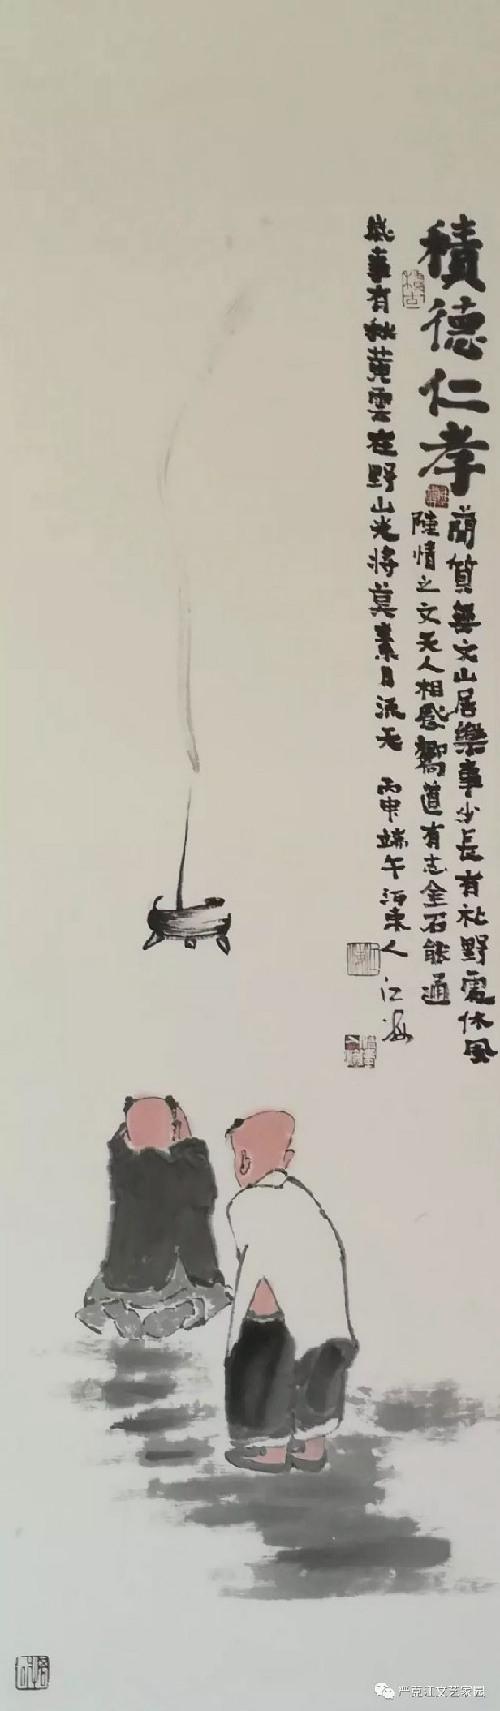 積德仁孝
蘭質無文山居樂事少長有礼野處休風
陸情之文天人相感嚮道有志金石能通
歲事有秋黃雲在野山光將莫素月流天
丙申端午河東人江海
严克江文艺家园